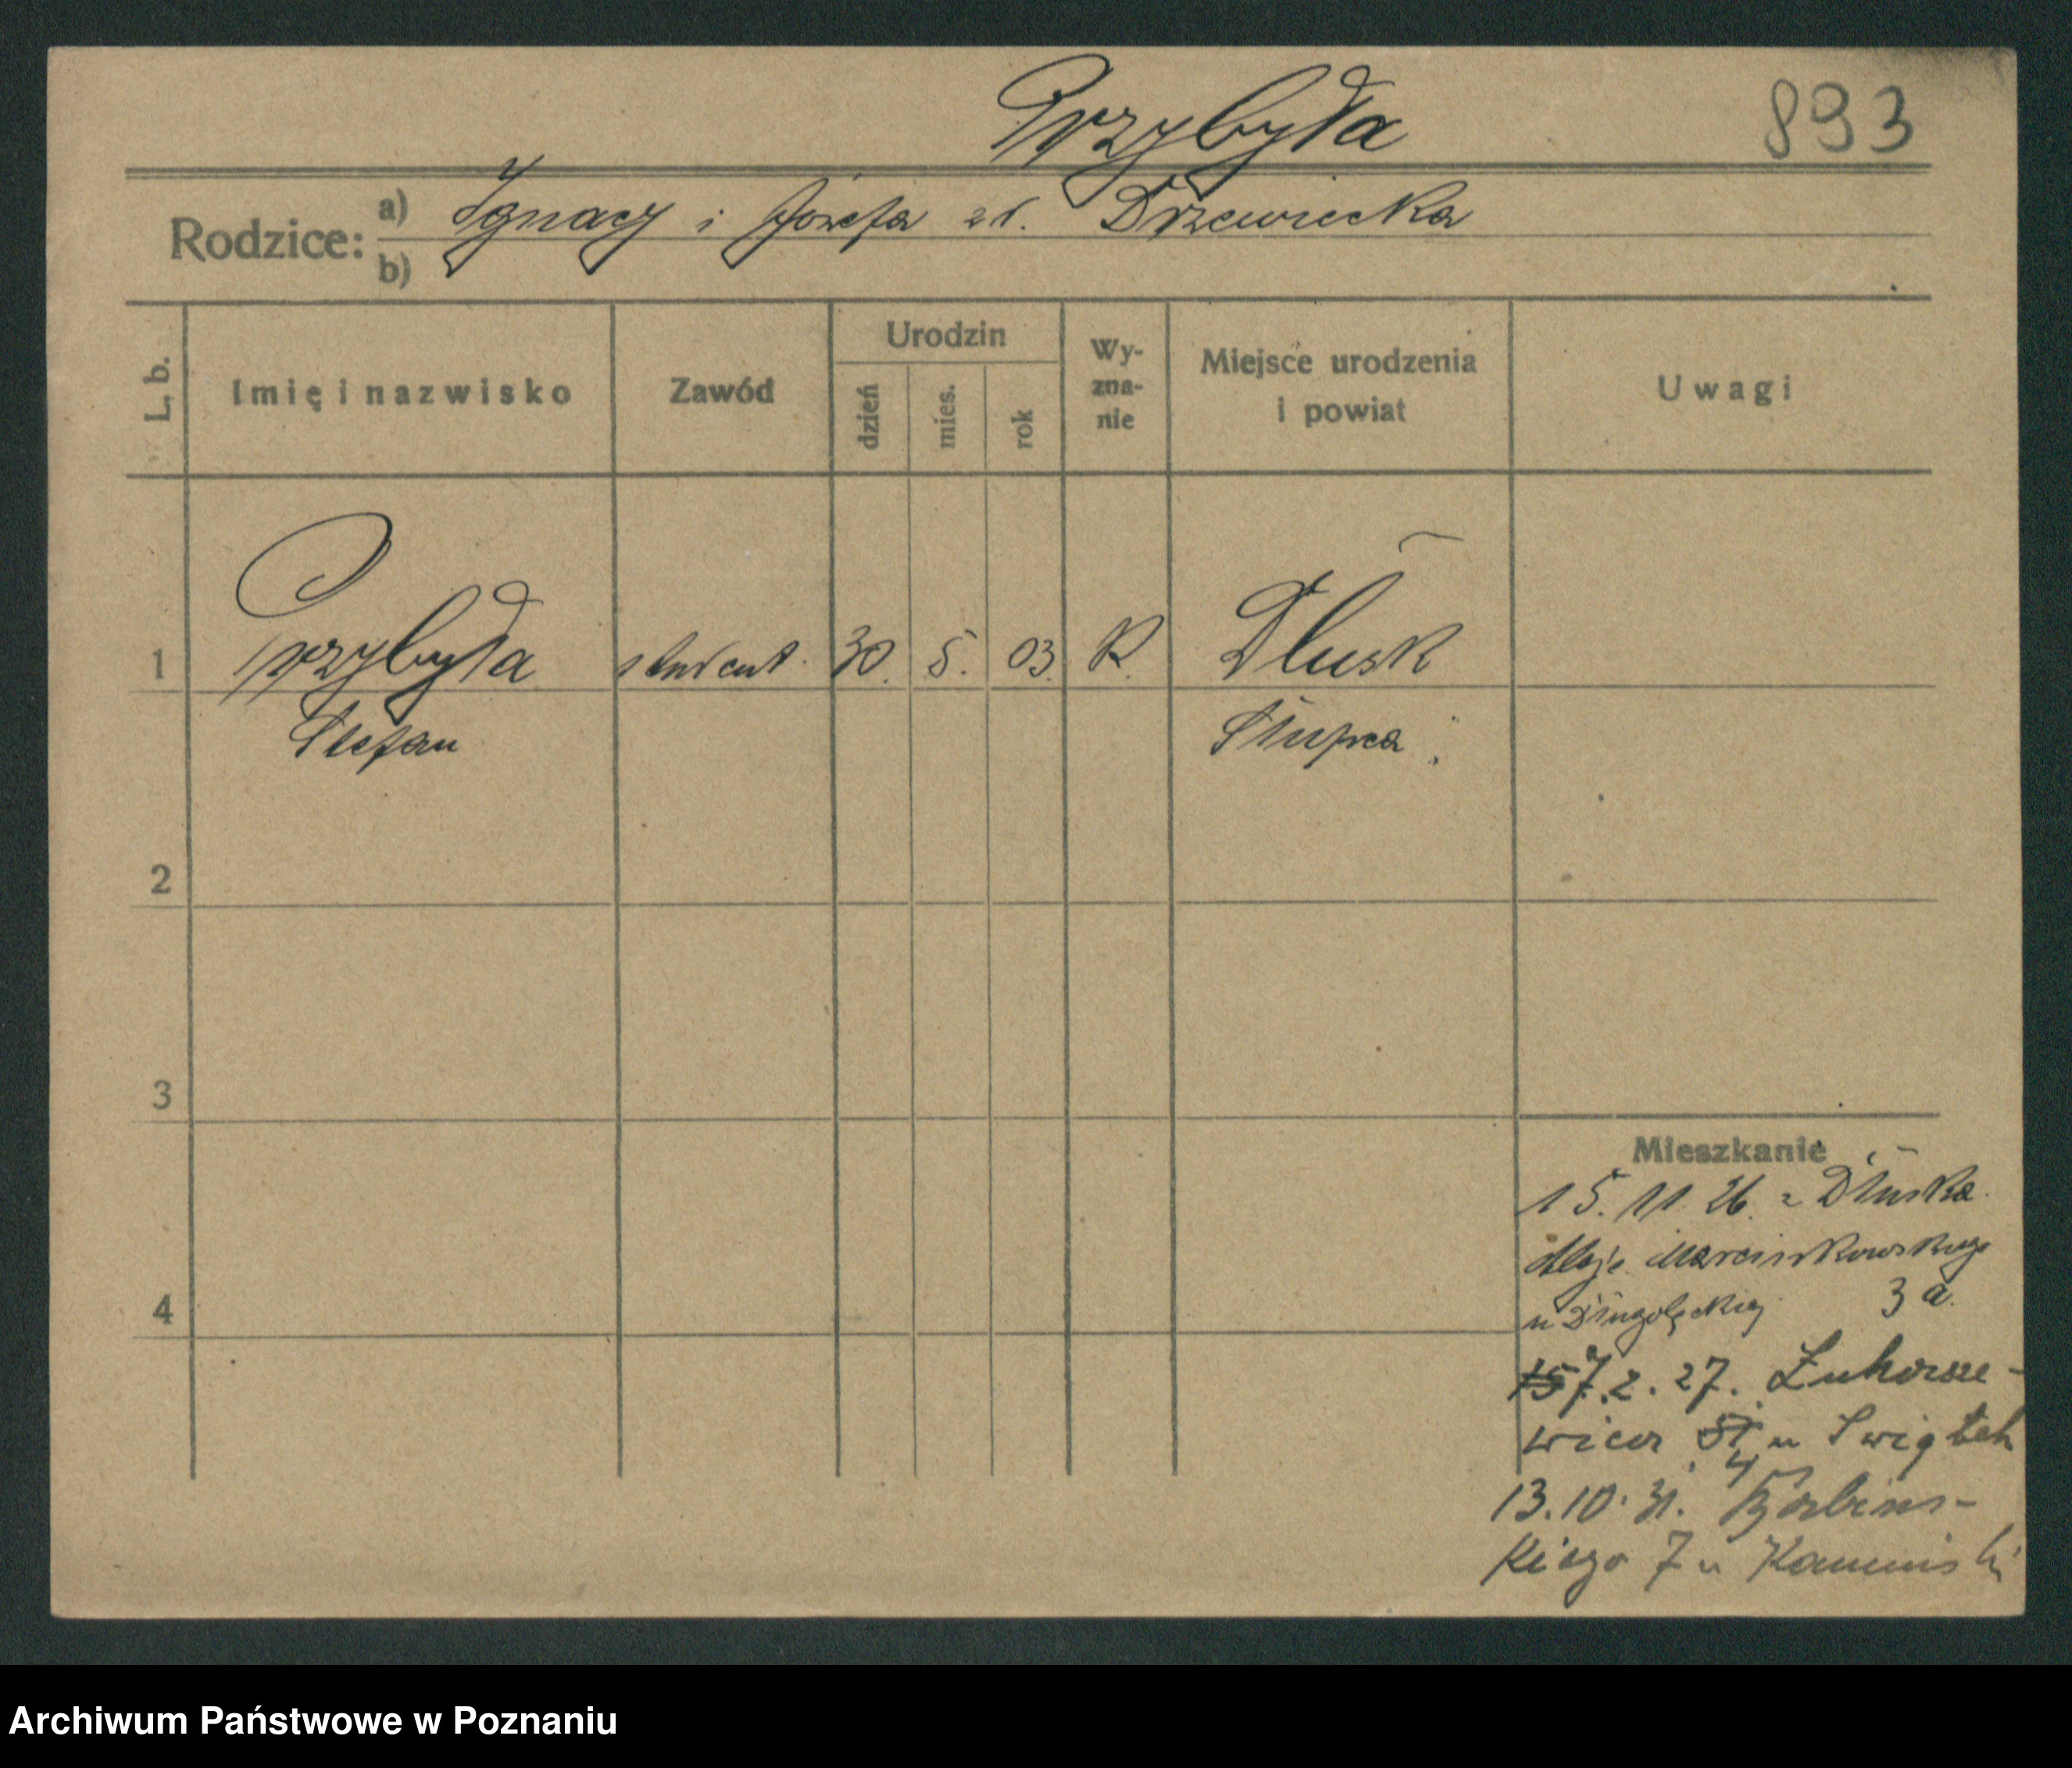 Przybyła 893
Rodzice: a) Ignacy i Józefa zd. Drzewiecka
b)
L. b. Imię i nazwisko Zawód Urodzin dzień mies. rok Wy-zna-nie Miejsce urodzenia i powiat Uwagi
1 Przybyła student. 30. 5. 03. R. Dłusk
Stefan Słupca
2
3
Mieszkanie
15. 11 26. z Dłuska.
Aleje Marcinkowskiego
4 u 3 a.
7.2.27. Łukasze-
wicza u Swiątek
13.10.31.
kiego 7 u Kaminski
Archiwum Państwowe w Poznaniu